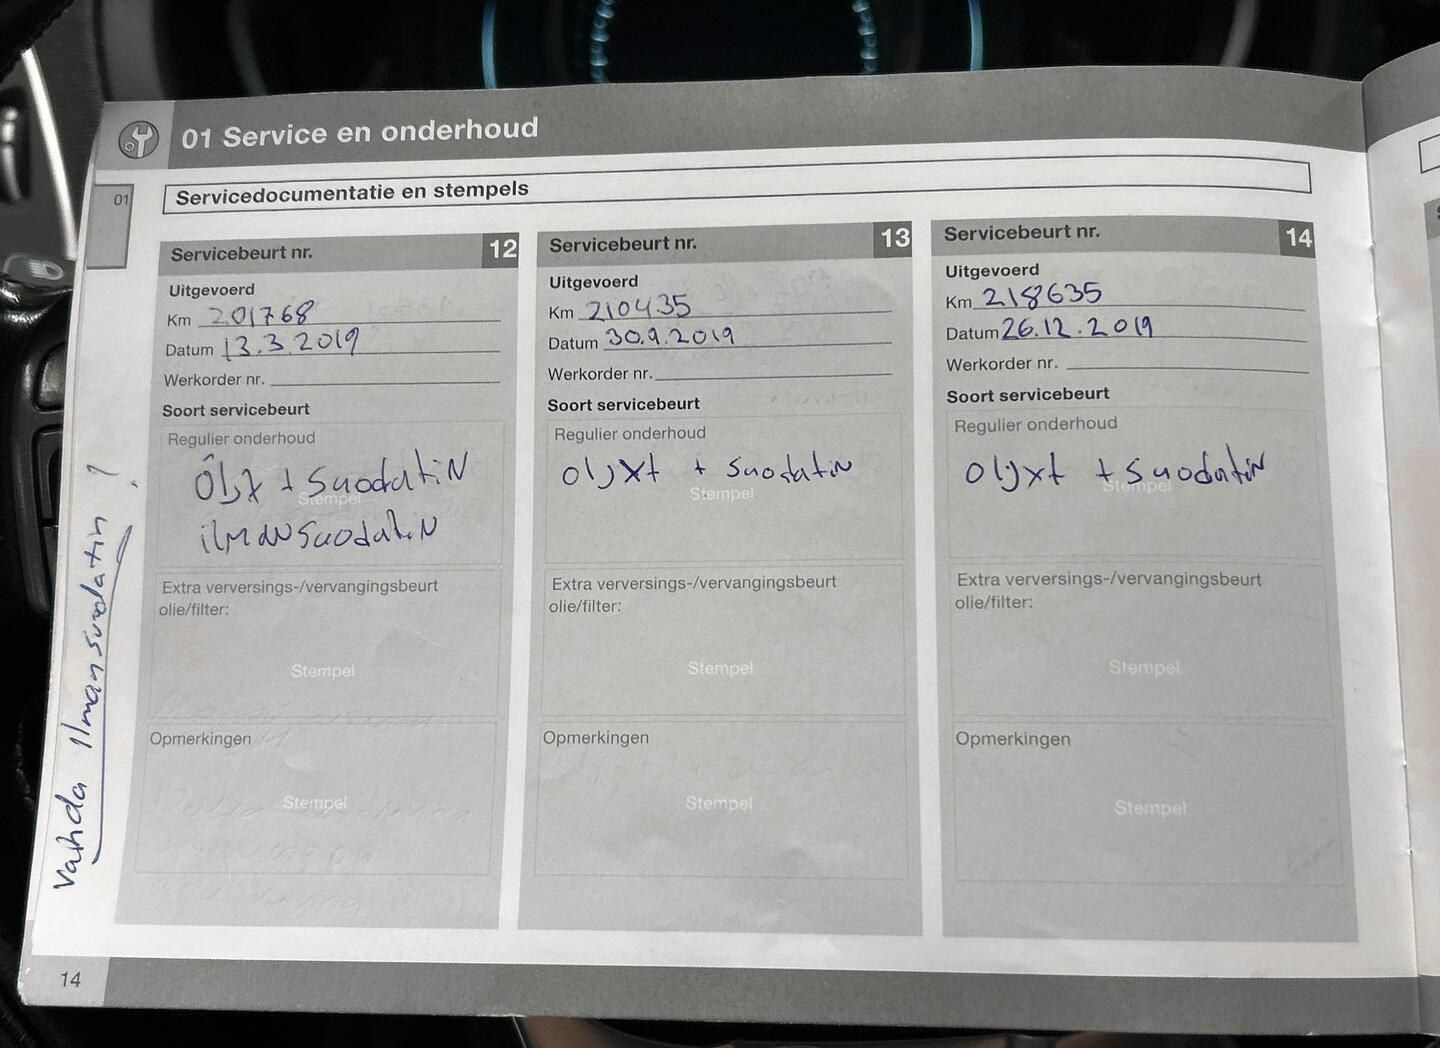 01 Service en onderhoud
01
Servicedocumentatie en stempels
Servicebeurt nr. 12
Uitgevoerd
Km 201768
Datum 13.3.2019
Werkorder nr.
Soort servicebeurt
Regulier onderhoud
Öljx + Suodatin
Stempel
ilmansuodatin
Extra verversings-/vervangingsbeurt
olie/filter:
Stempel
Opmerkingen
Stempel
Servicebeurt nr. 13
Uitgevoerd
Km 210435
Datum 30.9.2019
Werkorder nr.
Soort servicebeurt
Regulier onderhoud
Oljxt + Suodatin
Stempel
Extra verversings-/vervangingsbeurt
olie/filter:
Stempel
Opmerkingen
Stempel
Servicebeurt nr. 14
Uitgevoerd
Km 218635
Datum 26.12.2019
Werkorder nr.
Soort servicebeurt
Regulier onderhoud
Oljxt + Suodatin
Stempel
Extra verversings-/vervangingsbeurt
olie/filter:
Stempel
Opmerkingen
Stempel
Vaihda Ilmansuodatin !
14